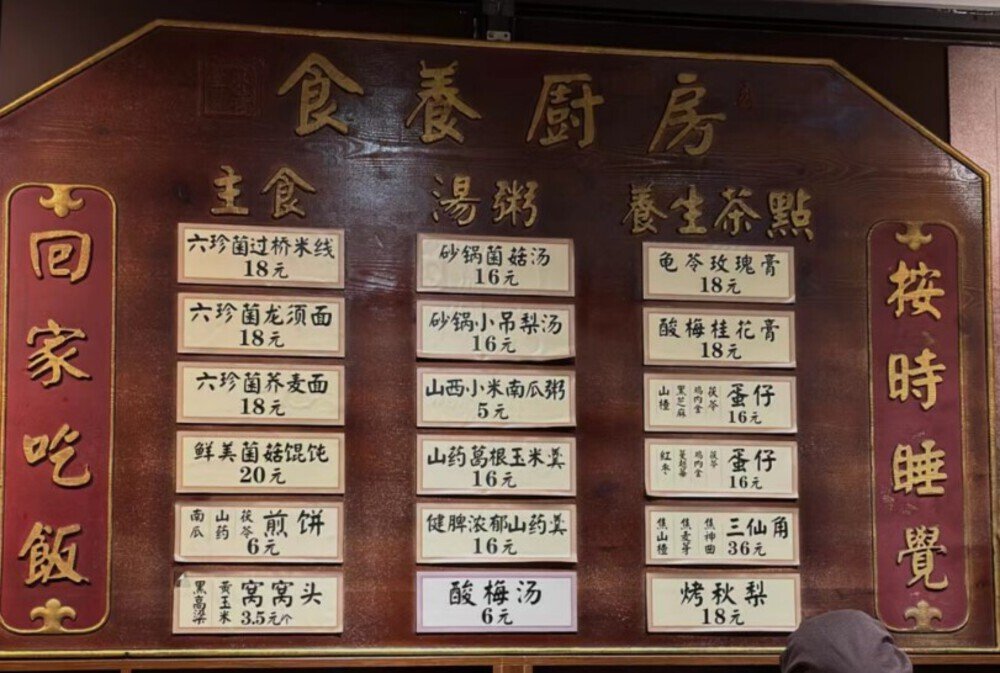 食養厨房
回家吃飯
主食
六珍菌过桥米线
18元
六珍菌龙须面
18元
六珍菌荞麦面
18元
鲜美菌菇馄饨
20元
南瓜 山药 茯苓 煎饼
6元
黑高粱 黄玉米 窝窝头
3.5元/个
湯粥
砂锅菌菇汤
16元
砂锅小吊梨汤
16元
山西小米南瓜粥
5元
山药葛根玉米羹
16元
健脾浓郁山药羹
16元
酸梅汤
6元
養生茶點
龟苓玫瑰膏
18元
酸梅桂花膏
18元
山楂 黑芝麻 鸡内金 茯苓 蛋仔
16元
红枣 蔓越莓 鸡内金 茯苓 蛋仔
16元
焦山楂 焦麦芽 焦神曲 三仙角
36元
烤秋梨
18元
按時睡覺